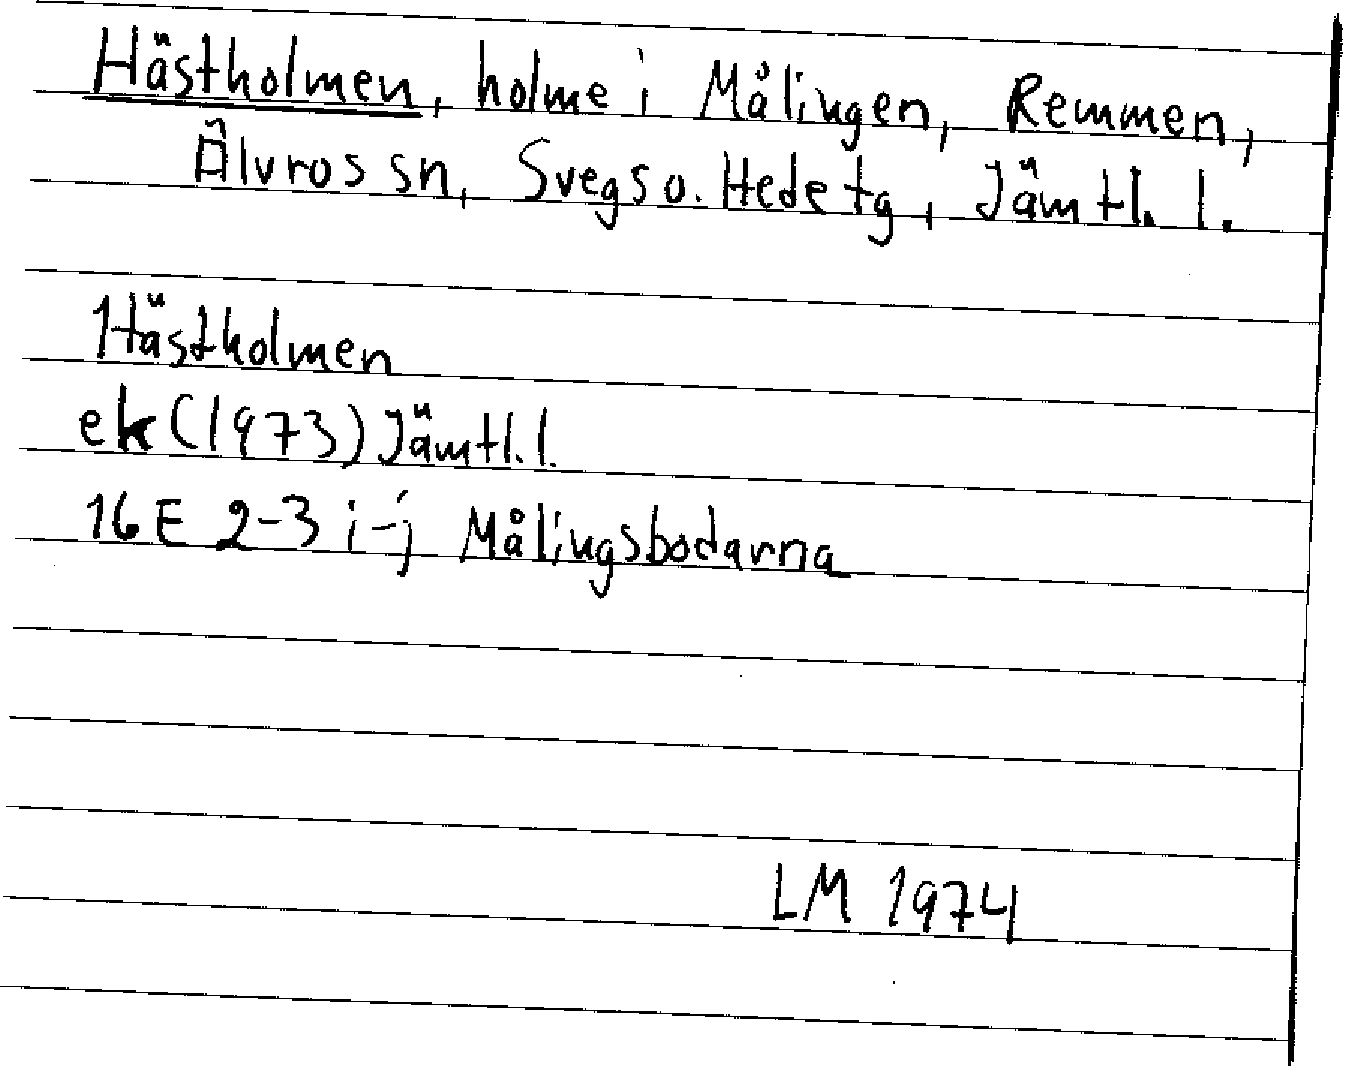 Hästholmen, holme i Målingen, Remmen,
Älvros sn, Svegs o. Hede tg, Jämtl. l.
Hästholmen
ek (1973) Jämtl. l.
16 E 2-3 i-j Målingsbodarna
LM 1974